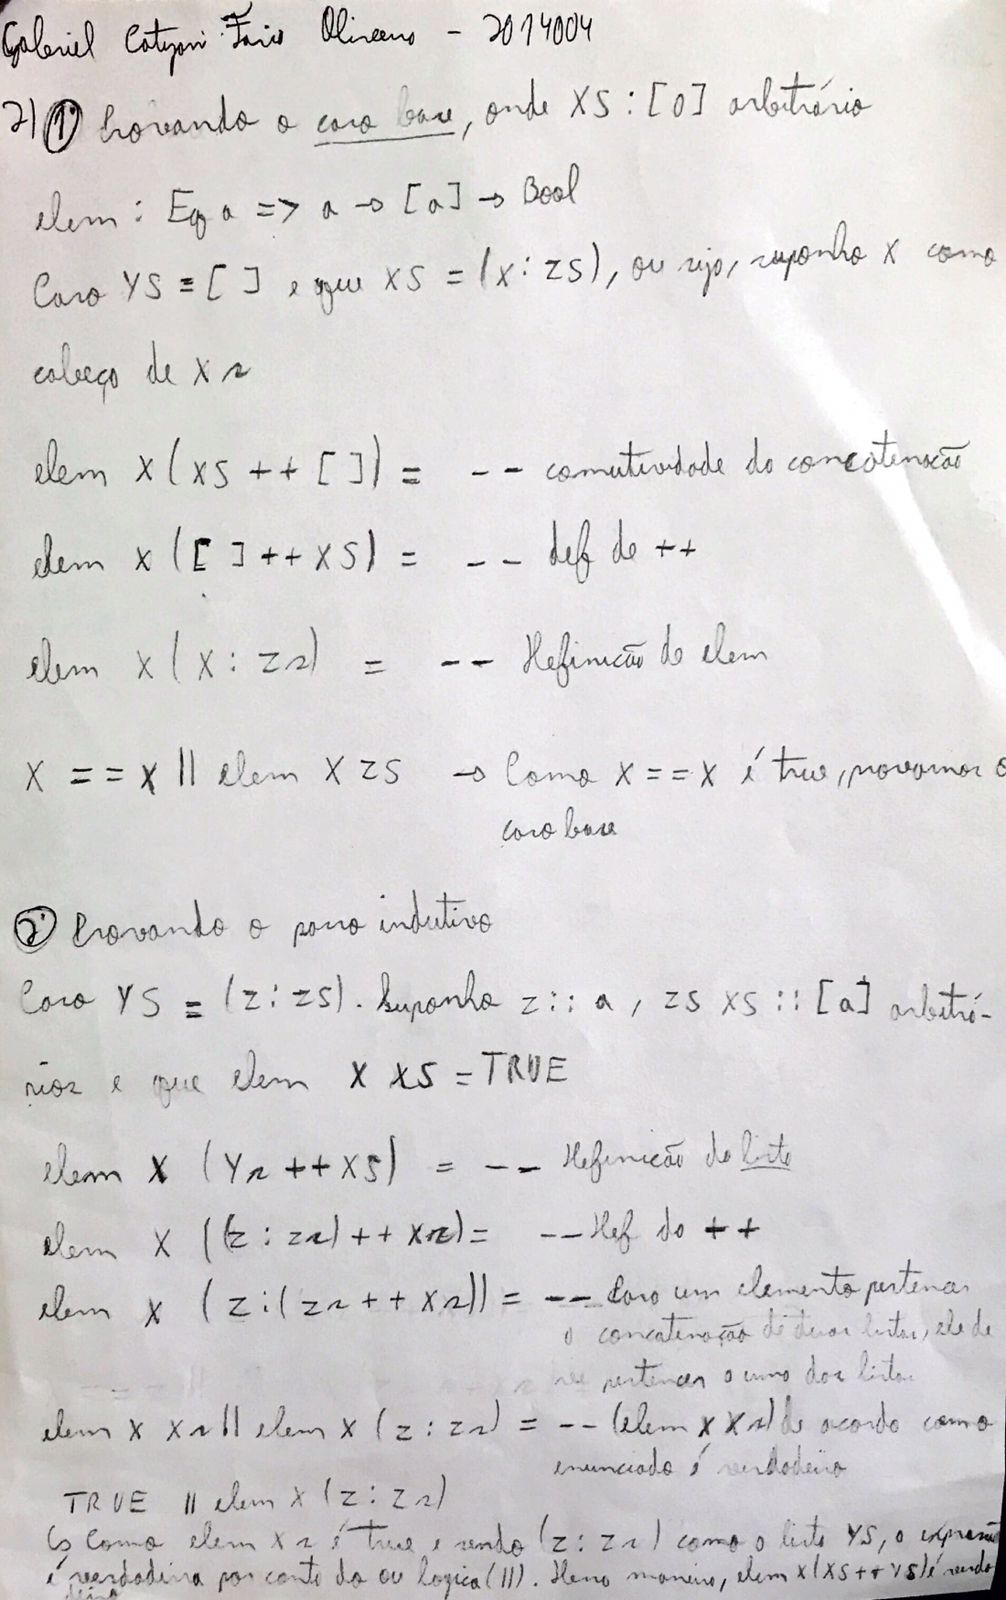 Gabriel - 2014004
2) 1) Provando o caso base, onde XS : [a] arbitrário
elem : Eq a => a -> [a] -> Bool
Caso YS = [ ] e que XS = (x : ZS), ou seja, suponha X como
cabeça de Xs
elem X (XS ++ [ ]) = -- comutividade da concatenação
elem X ([ ] ++ XS) = -- def de ++
elem X (X : Zs) = -- Definição de elem
X == X || elem X ZS -> Como X == X é true, provamos o
caso base
2) Provando o passo indutivo
Caso YS = (Z : ZS). Suponha Z :: a, ZS XS :: [a] arbitrá-
rios e que elem X XS = TRUE
elem X (Ys ++ XS) = -- Definição da lista
elem X ((Z : Zs) ++ Xs) = -- Def do ++
elem X (Z : (Zs ++ Xs)) = -- Caso um elemento pertencer
a concatenação de duas listas, ele de
pertencer a uma das listas
elem X Xs || elem X (Z : Zs) = -- (elem X Xs) de acordo com o
enunciado é verdadeiro
TRUE || elem X (Z : Zs)
Como elem X s é true e sendo (Z : Zs) como a lista YS, a expressão
é verdadeira por conta do ou logico (||). Dessa maneira, elem X (XS ++ YS) é verda
deira